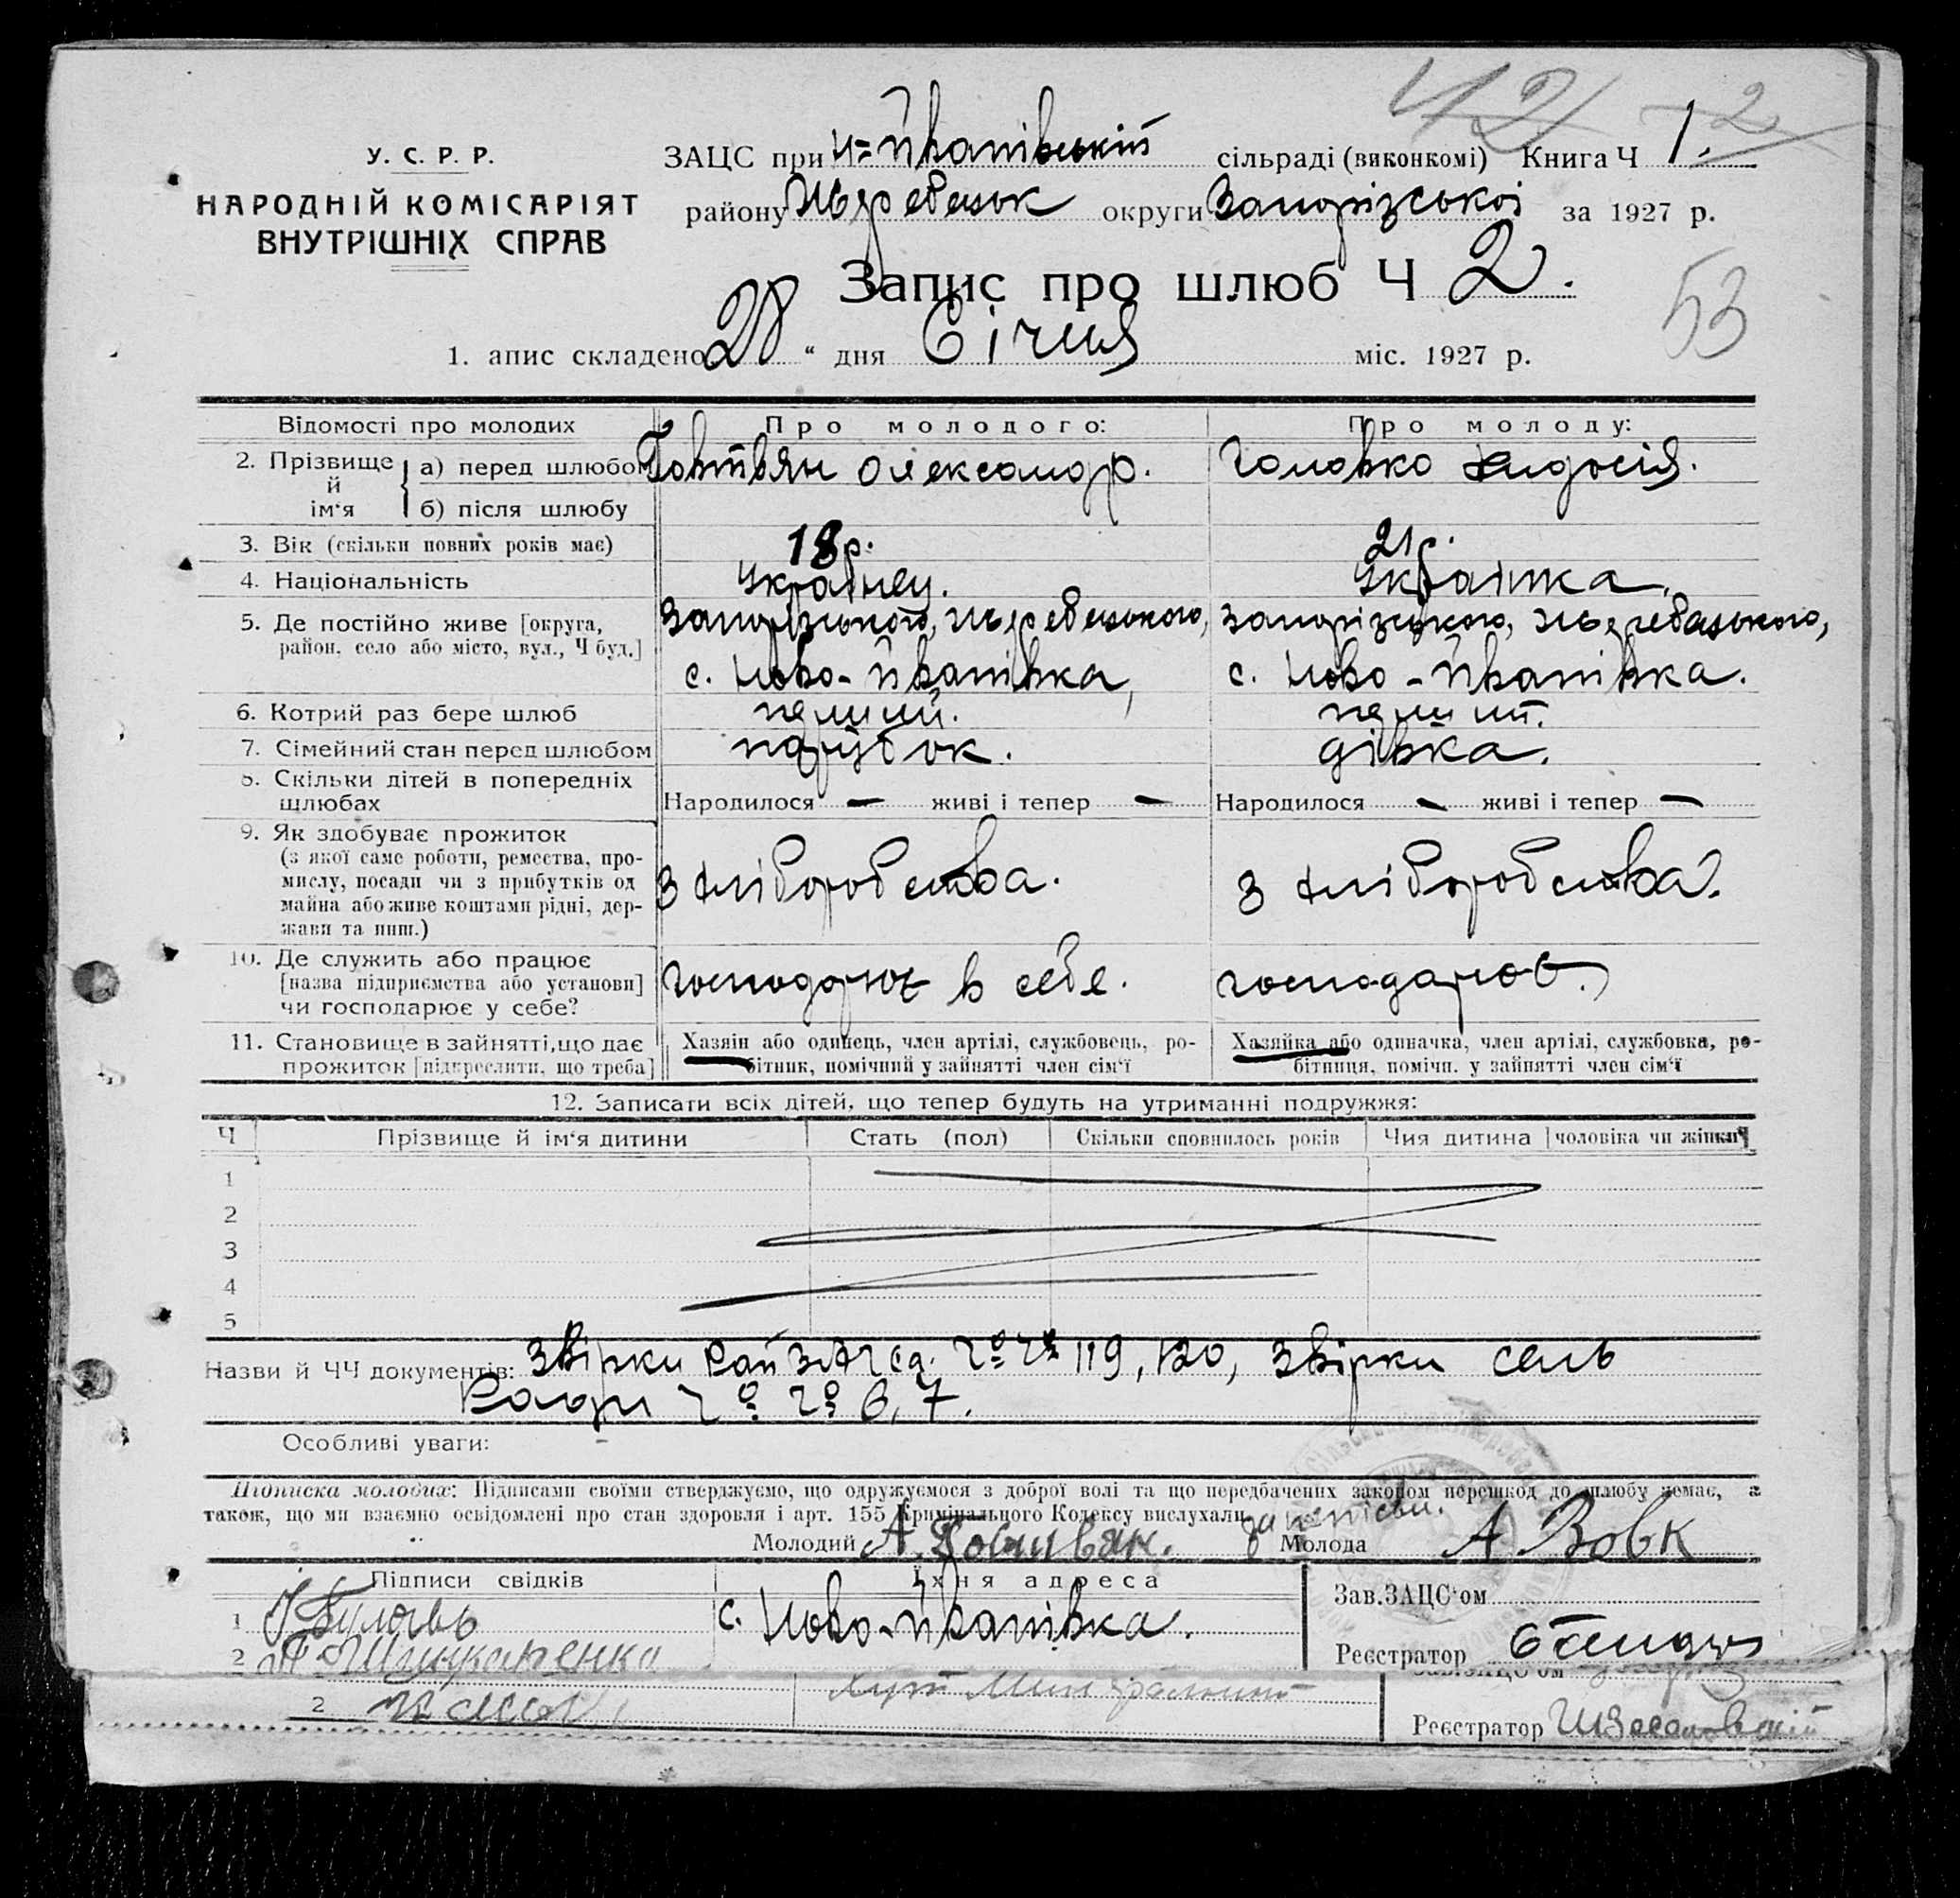 42 2
У. С. Р. Р.
НАРОДНІЙ КОМІСАРІЯТ
ВНУТРІШНІХ СПРАВ
ЗАЦС при Н=Йванівській сільраді (виконкомі) Книга Ч 1.
району Жеребецьк округи Запорізської за 1927 р.
Запис про шлюб Ч 2.
53
1. апис складено 28 “ дня Січня міс. 1927 р.
Відомості про молодих Про молодого: Про молоду:
2. Прізвище й ім‘я а) перед шлюбом Говтвян Олександр. Головко
б) після шлюбу
3. Вік (скільки повних років має) 18 р. 21 р.
4. Національність Українец. Українка.
5. Де постійно живе [округа, Запорізького, Жеребецького, Запорізького, Жеребецького,
район, село або місто, вул., Ч буд.] с. Ново-Йванівка, с. Ново-Йванівка.
6. Котрий раз бере шлюб перший. перший.
7. Сімейний стан перед шлюбом парубок. дівка.
8. Скільки дітей в попередніх
шлюбах Народилося — живі і тепер — Народилося — живі і тепер —
9. Як здобуває прожиток
(з якої саме роботи, ремества, про-
мислу, посади чи з прибутків од З хліборобства. З хліборобства.
майна або живе коштами рідні, дер-
жави та инш.)
10. Де служить або працює
[назва підприємства або установи] господарює в себе. господарює.
чи господарює у себе?
11. Становище в зайнятті, що дає Хазяїн або одинець, член артілі, службовець, ро- Хазяйка або одиначка, член артілі, службовка, ро-
прожиток [підкреслити, що треба] бітник, помічний у зайнятті член сім‘ї бітниця, помічн. у зайнятті член сім‘ї
12. Записати всіх дітей, що тепер будуть на утриманні подружжя:
Ч Прізвище й ім‘я дитини Стать (пол) Скільки сповнилось років Чия дитина [чоловіка чи жінки]
1
2
3
4
5
Назви й ЧЧ документів: Звірки Рай ЗАЧСа. Чо Чо 119, 120, Звірки Сель
Ради Чо Чо 6, 7.
Особливі уваги: –
Підписка молодих: Підписами своїми стверджуємо, що одружуємося з доброї волі та що передбачених законом перешкод до шлюбу немає, а
також, що ми взаємно освідомлені про стан здоровля і арт. 155 Кримінального Кодексу вислухали.
Молодий А. Говтвян. Молода А Вовк
Підписи свідків Їхня адреса Зав.ЗАЦС‘ом
1 с. Ново-Йванівка.
2 Реєстратор
Зав.ЗАЦС‘ом
2 хут
Реєстратор